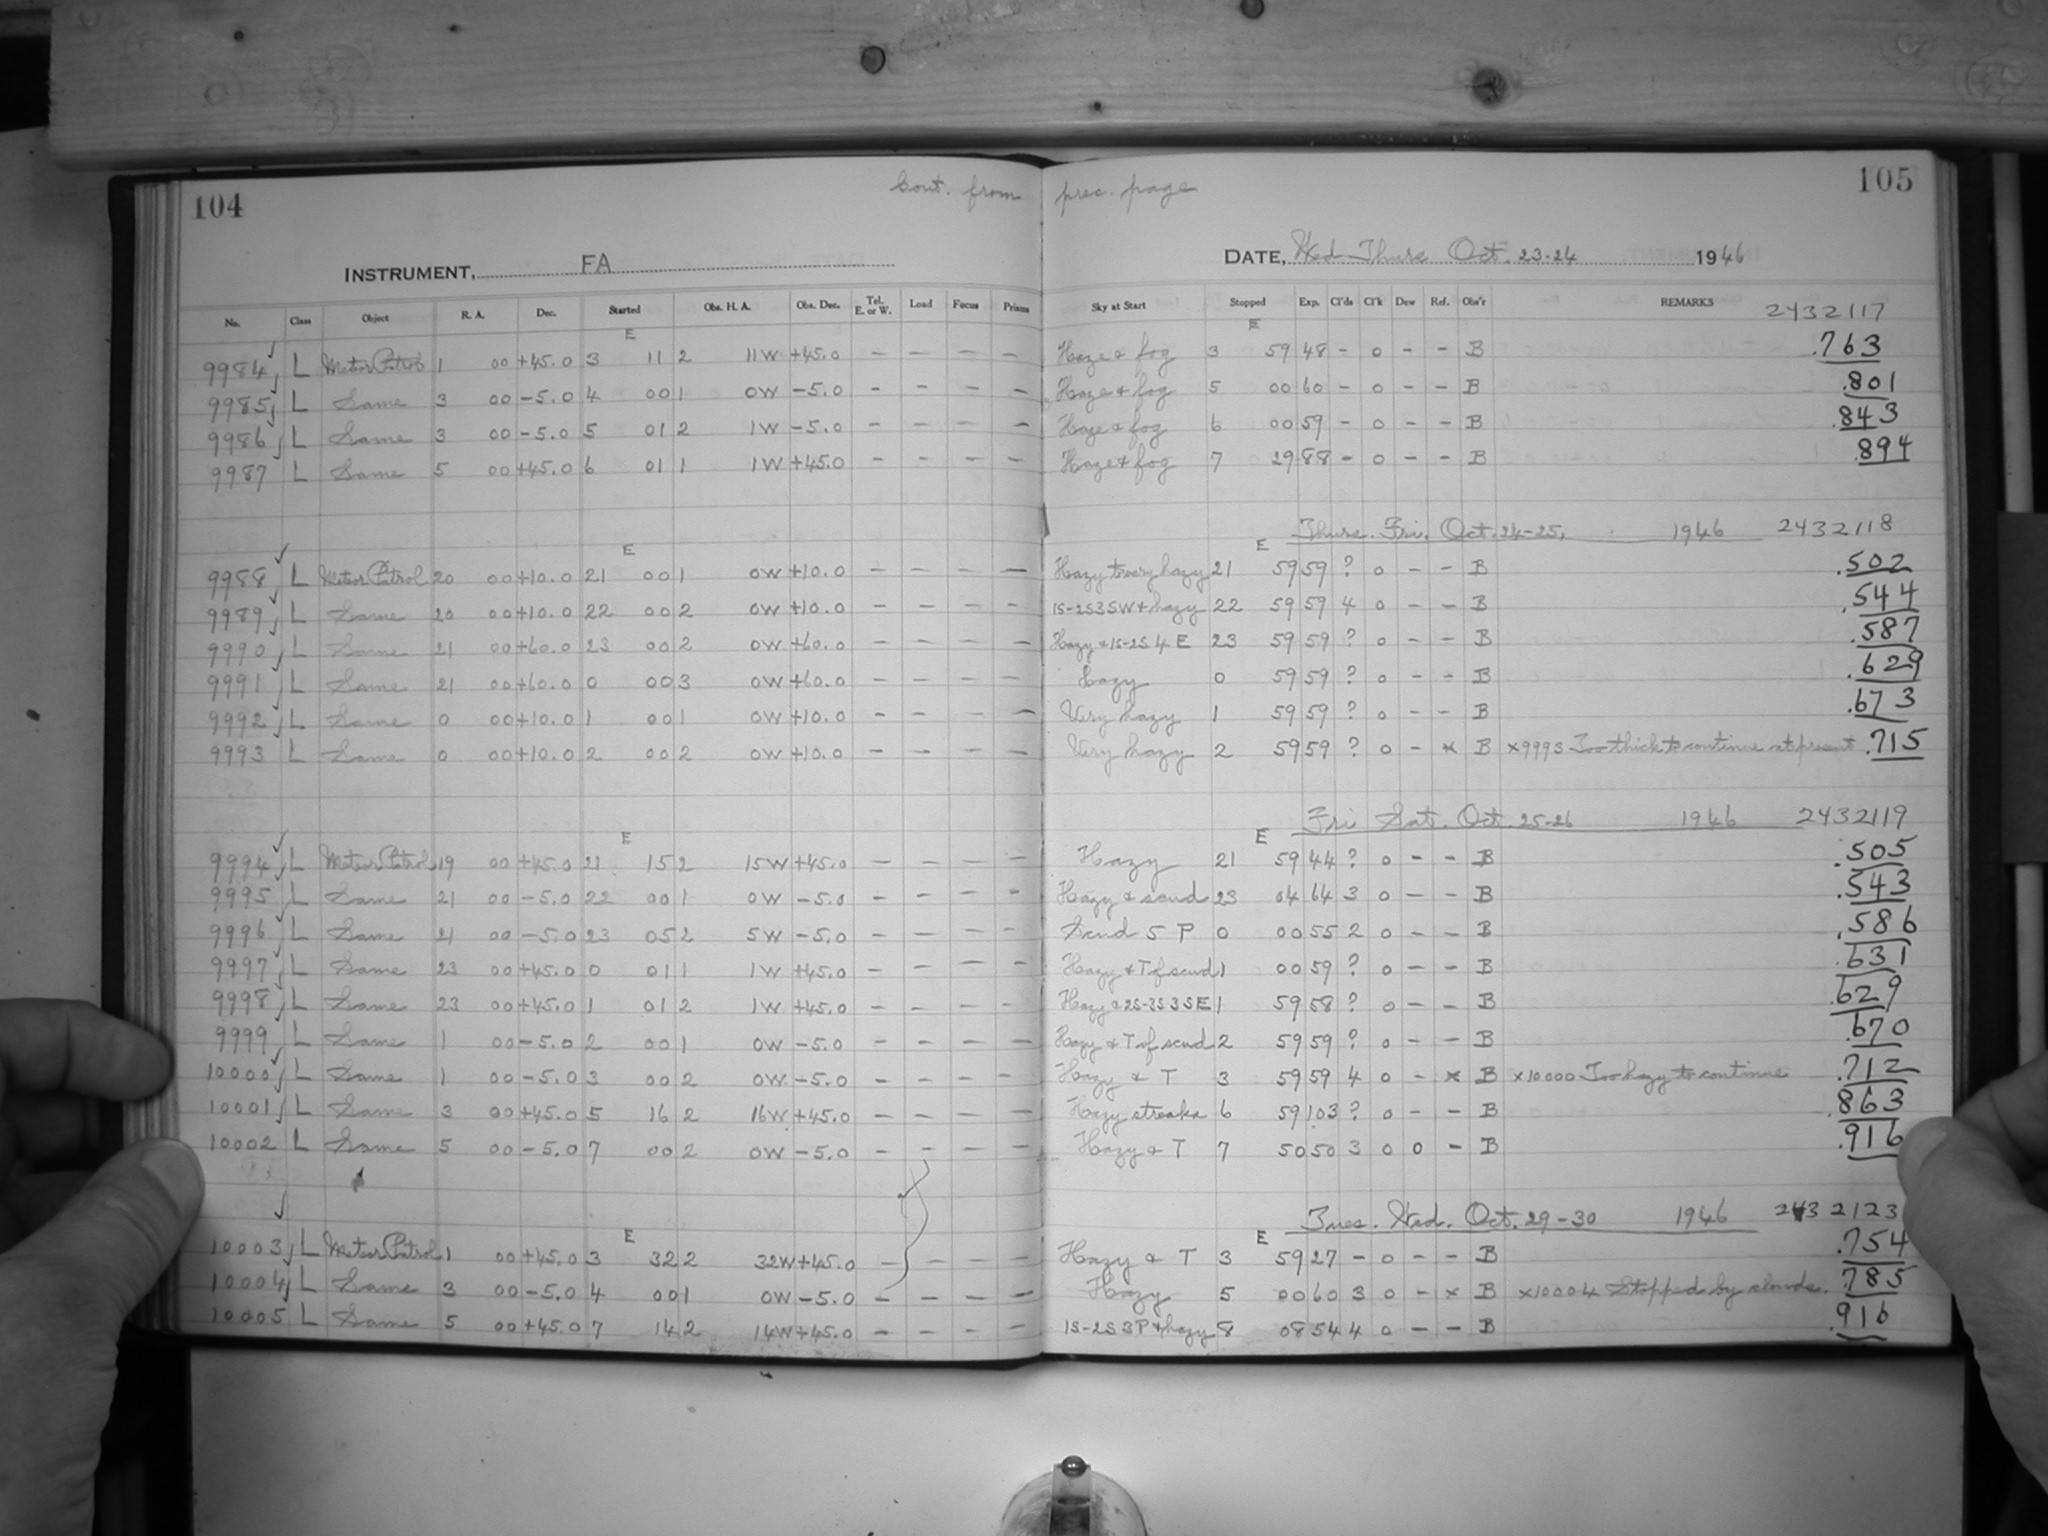 104 Cont. from prec. page 105
INSTRUMENT, FA DATE, Wed Thurs Oct. 23-24 1946
No. Class Object R. A. Dec. Started Obs. H. A. Obs. Dec. Tel. E. or W. Load Focus Prisms Sky at Start Stopped Exp. Cl'ds Cl'k Dew Ref. Obs'r REMARKS 2432117
E E
9984 L Meteor Patrol 1 00 +45.0 3 11 2 11W +45.0 — — — — Haze & fog 3 59 48 - 0 - - B .763
9985 L Same 3 00 -5.0 4 00 1 0W -5.0 - - - — Haze & fog 5 00 60 - 0 - - B .801
9986 L Same 3 00 -5.0 5 01 2 1W -5.0 - - - — Haze & fog 6 00 59 - 0 - - B .843
9987 L Same 5 00 +45.0 6 01 1 1W +45.0 - - - — Haze & fog 7 29 88 - 0 - - B .894
Thurs. Fri. Oct. 24-25, 1946 2432118
E E
9988 L Meteor Patrol 20 00 +10.0 21 00 1 0W +10.0 - - - — Hazy to very hazy 21 59 59 ? 0 - - B .502
9989 L Same 20 00 +10.0 22 00 2 0W +10.0 - - - — 1S-2S3SW & hazy 22 59 59 4 0 - - B .544
9990 L Same 21 00 +60.0 23 00 2 0W +60.0 - - - — Hazy & 1S-2S 4 E 23 59 59 ? 0 - - B .587
9991 L Same 21 00 +60.0 0 00 3 0W +60.0 - - - — Hazy 0 59 59 ? 0 - - B .629
9992 L Same 0 00 +10.0 1 00 1 0W +10.0 - - - — Very hazy 1 59 59 ? 0 - - B .673
9993 L Same 0 00 +10.0 2 00 2 0W +10.0 - - - — Very hazy 2 59 59 ? 0 - x B x9993 Too thick to continue at present .715
Fri Sat. Oct. 25-26 1946 2432119
E E
9994 L Meteor Patrol 19 00 +45.0 21 15 2 15W +45.0 - - - — Hazy 21 59 44 ? 0 - - B .505
9995 L Same 21 00 -5.0 22 00 1 0W -5.0 - - - - Hazy & scud 23 04 64 3 0 - - B .543
9996 L Same 21 00 -5.0 23 05 2 5W -5.0 - - - - Scud 5 P 0 00 55 2 0 - - B .586
9997 L Same 23 00 +45.0 0 01 1 1W +45.0 - - - - Hazy & T of scud 1 00 59 ? 0 - - B .631
9998 L Same 23 00 +45.0 1 01 2 1W +45.0 - - - - Hazy & 2S-3S 3 SE 1 59 58 ? 0 - - B .629
9999 L Same 1 00 -5.0 2 00 1 0W -5.0 - - - - Hazy & T of scud 2 59 59 ? 0 - - B .670
10000 L Same 1 00 -5.0 3 00 2 0W -5.0 - - - - Hazy & T 3 59 59 4 0 - x B x10000 Too hazy to continue .712
10001 L Same 3 00 +45.0 5 16 2 16W +45.0 - - - - Hazy streaks 6 59 103 ? 0 - - B .863
10002 L Same 5 00 -5.0 7 00 2 0W -5.0 - - - - Hazy & T 7 50 50 3 0 0 - B .916
Tues. Wed. Oct. 29-30 1946 2432123
E E
10003 L Meteor Patrol 1 00 +45.0 3 32 2 32W +45.0 - - - - Hazy & T 3 59 27 - 0 - - B .754
10004 L Same 3 00 -5.0 4 00 1 0W -5.0 - - - - Hazy 5 00 60 3 0 - x B x10004 Stopped by clouds. .785
10005 L Same 5 00 +45.0 7 14 2 14W +45.0 - - - - 1S-2S 3 P & hazy 8 08 54 4 0 - - B .916